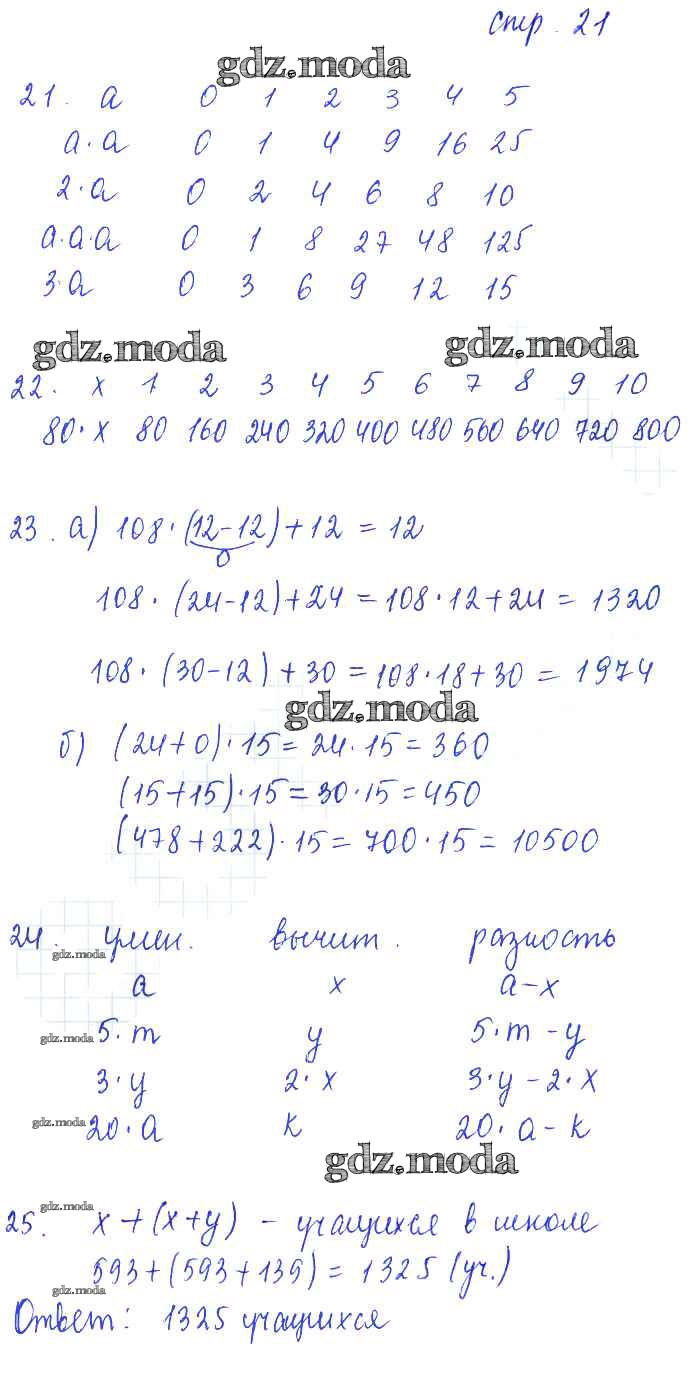 стр. 21
gdz.moda
21. a 0 1 2 3 4 5
a·a 0 1 4 9 16 25
2·a 0 2 4 6 8 10
a·a·a 0 1 8 27 48 125
3·a 0 3 6 9 12 15
gdz.moda gdz.moda
22. x 1 2 3 4 5 6 7 8 9 10
80·x 80 160 240 320 400 480 560 640 720 800
23. а) 108·(12-12)+12=12
0
108·(24-12)+24=108·12+24=1320
108·(30-12)+30=108·18+30=1974
gdz.moda
б) (24+0)·15=24·15=360
(15+15)·15=30·15=450
(478+222)·15=700·15=10500
24. умен. вычит. разность
gdz.moda
a x a-x
gdz.moda 5·m y 5·m-y
3·y 2·x 3·y-2·x
gdz.moda 20·a k 20·a-k
gdz.moda
gdz.moda
25. x+(x+y) - учащихся в школе
593+(593+139)=1325 (уч.)
gdz.moda
Ответ: 1325 учащихся